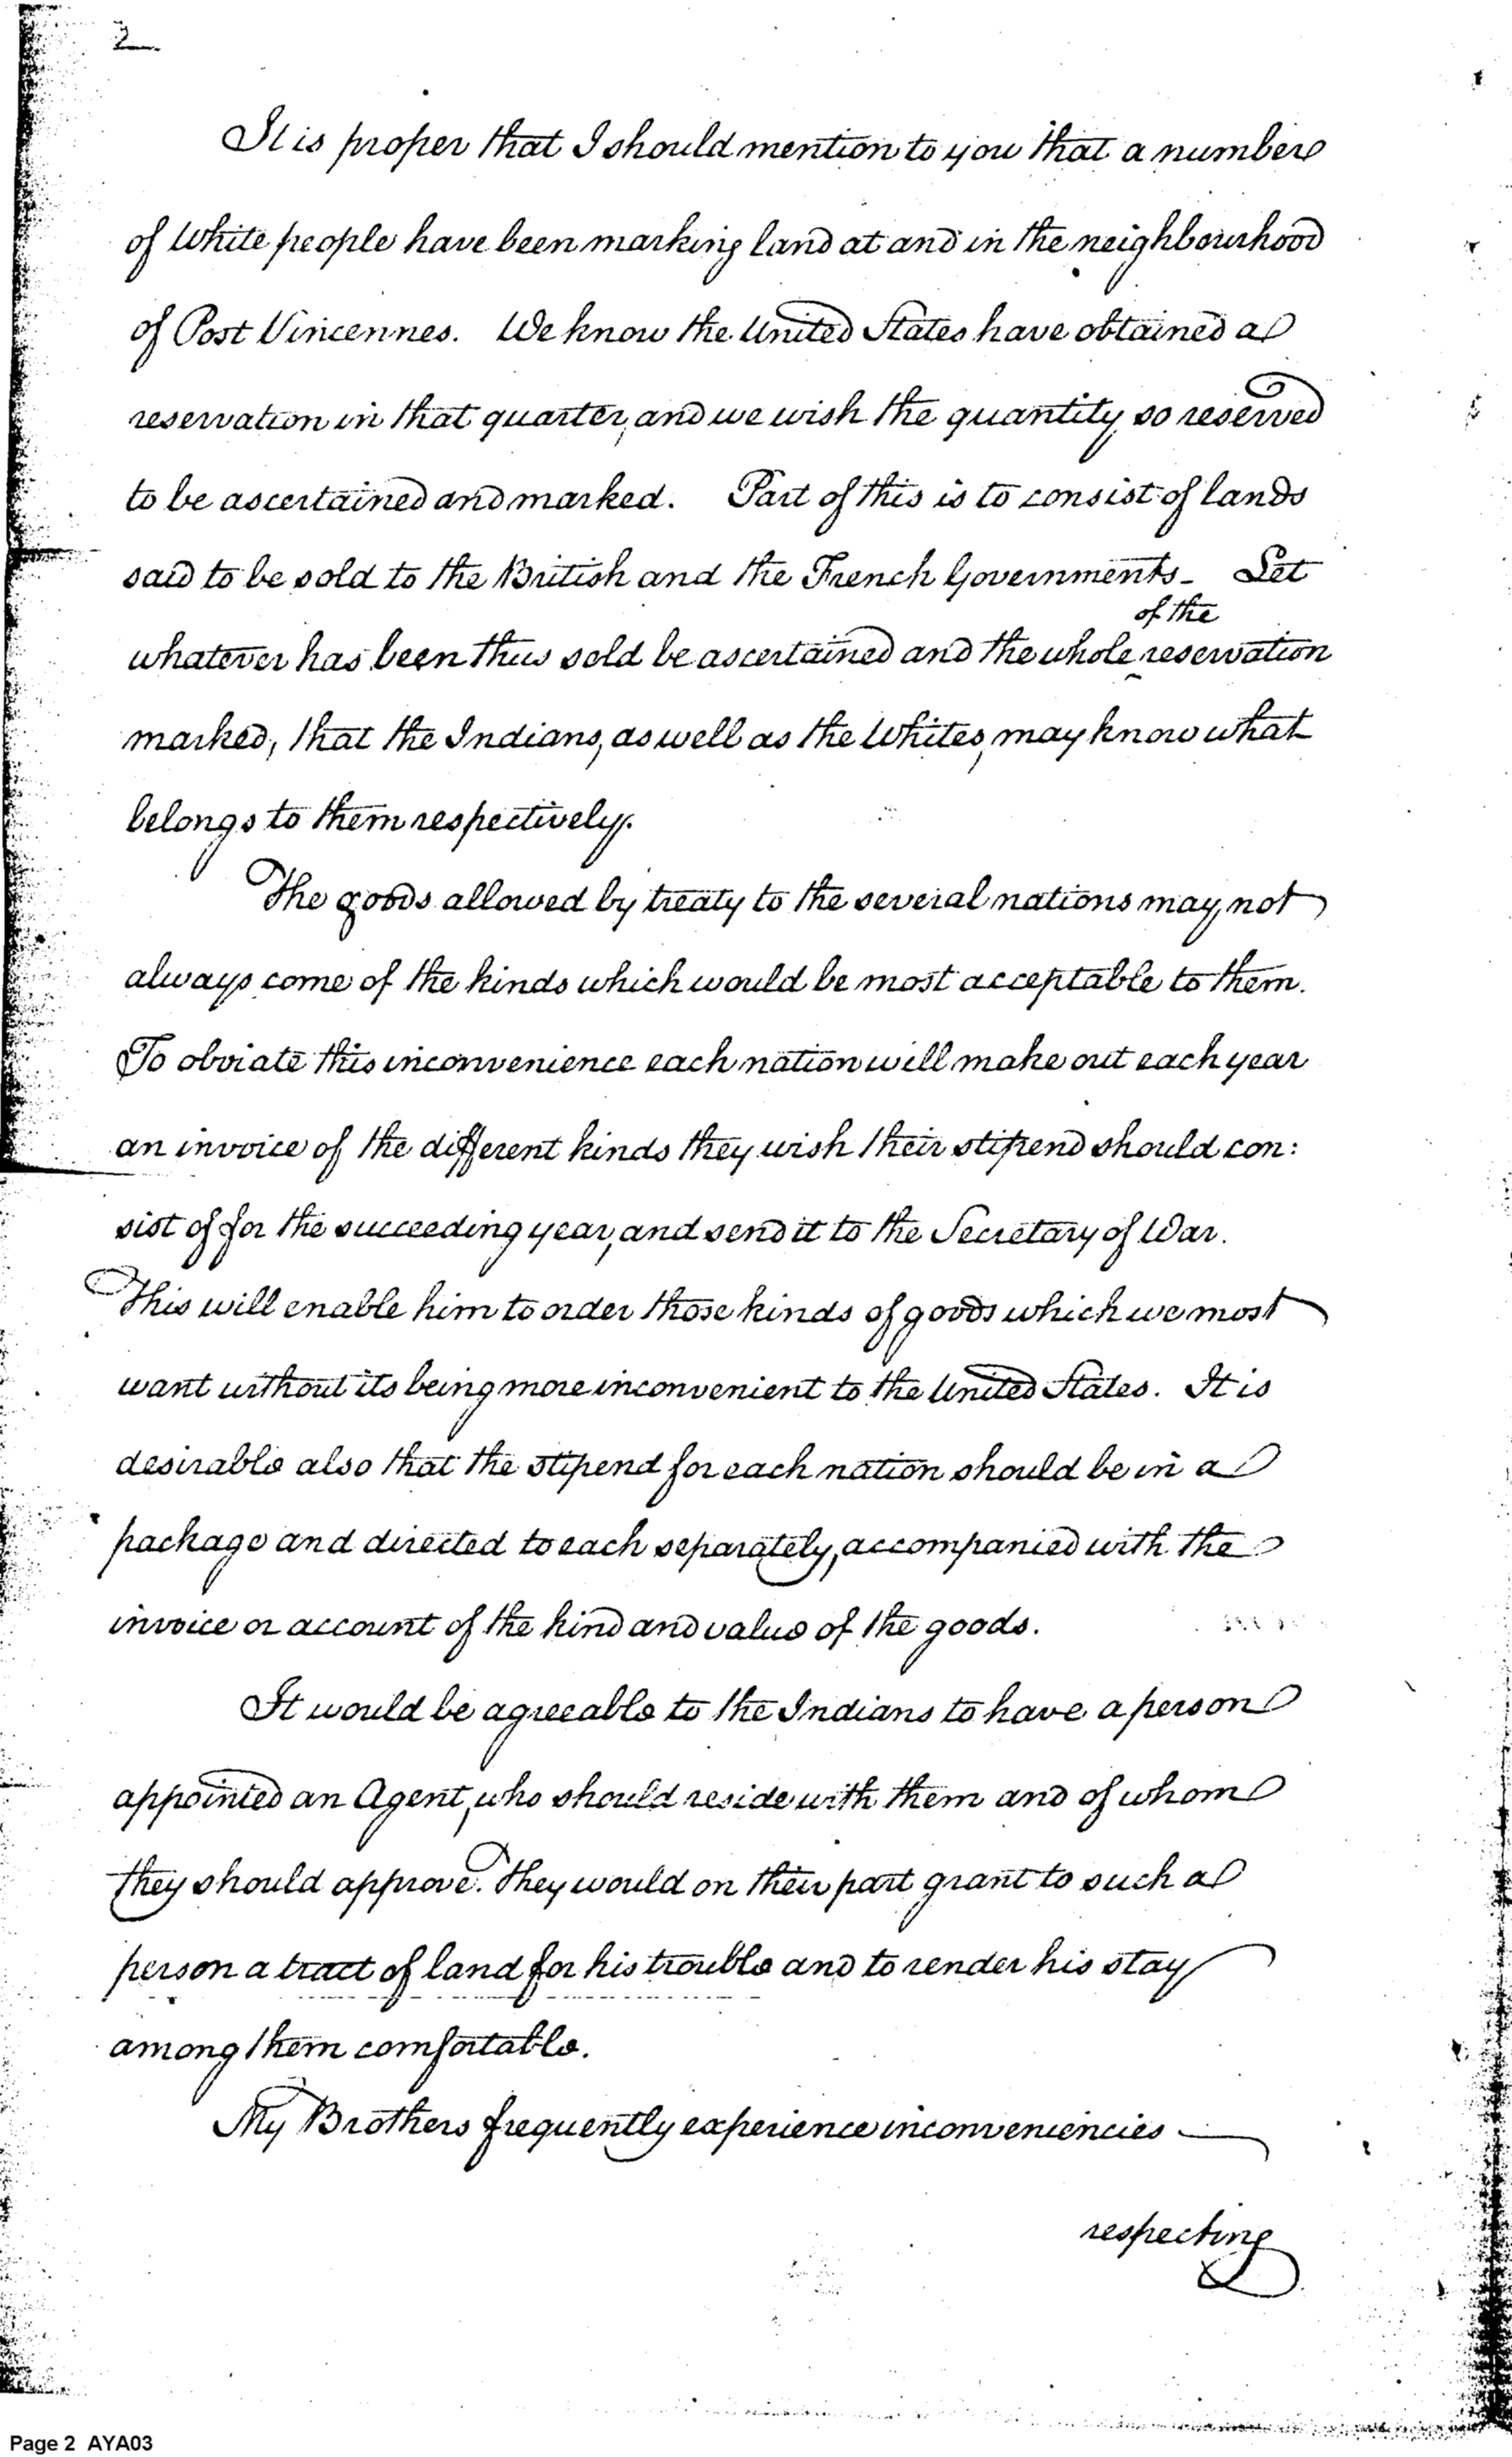 2
It is proper that I should mention to you that a number
of White people have been marking land at and in the neighbourhood
of Post Vincennes. We know the United States have obtained a
reservation in that quarter, and we wish the quantity so reserved
to be ascertained and marked. Part of this is to consist of lands
said to be sold to the British and the French Governments_ Let
of the
whatever has been thus sold be ascertained and the whole reservation
marked, that the Indians, as well as the Whites, may know what
belongs to them respectively.
The goods allowed by treaty to the several nations may not
always come of the kinds which would be most acceptable to them.
To obviate this inconvenience each nation will make out each year
an invoice of the different kinds they wish their stipend should con:
sist of for the succeeding year, and send it to the Secretary of War.
This will enable him to order those kinds of goods which we most
want without its being more inconvenient to the United States. It is
desirable also that the stipend for each nation should be in a
package and directed to each separately, accompanied with the
invoice or account of the kind and value of the goods.
It would be agreeable to the Indians to have a person
appointed an Agent, who should reside with them and of whom
they should approve. They would on their part grant to such a
person a tract of land for his trouble and to render his stay
among them comfortable.
My Brothers frequently experience inconveniencies
respecting
Page 2 AYA03